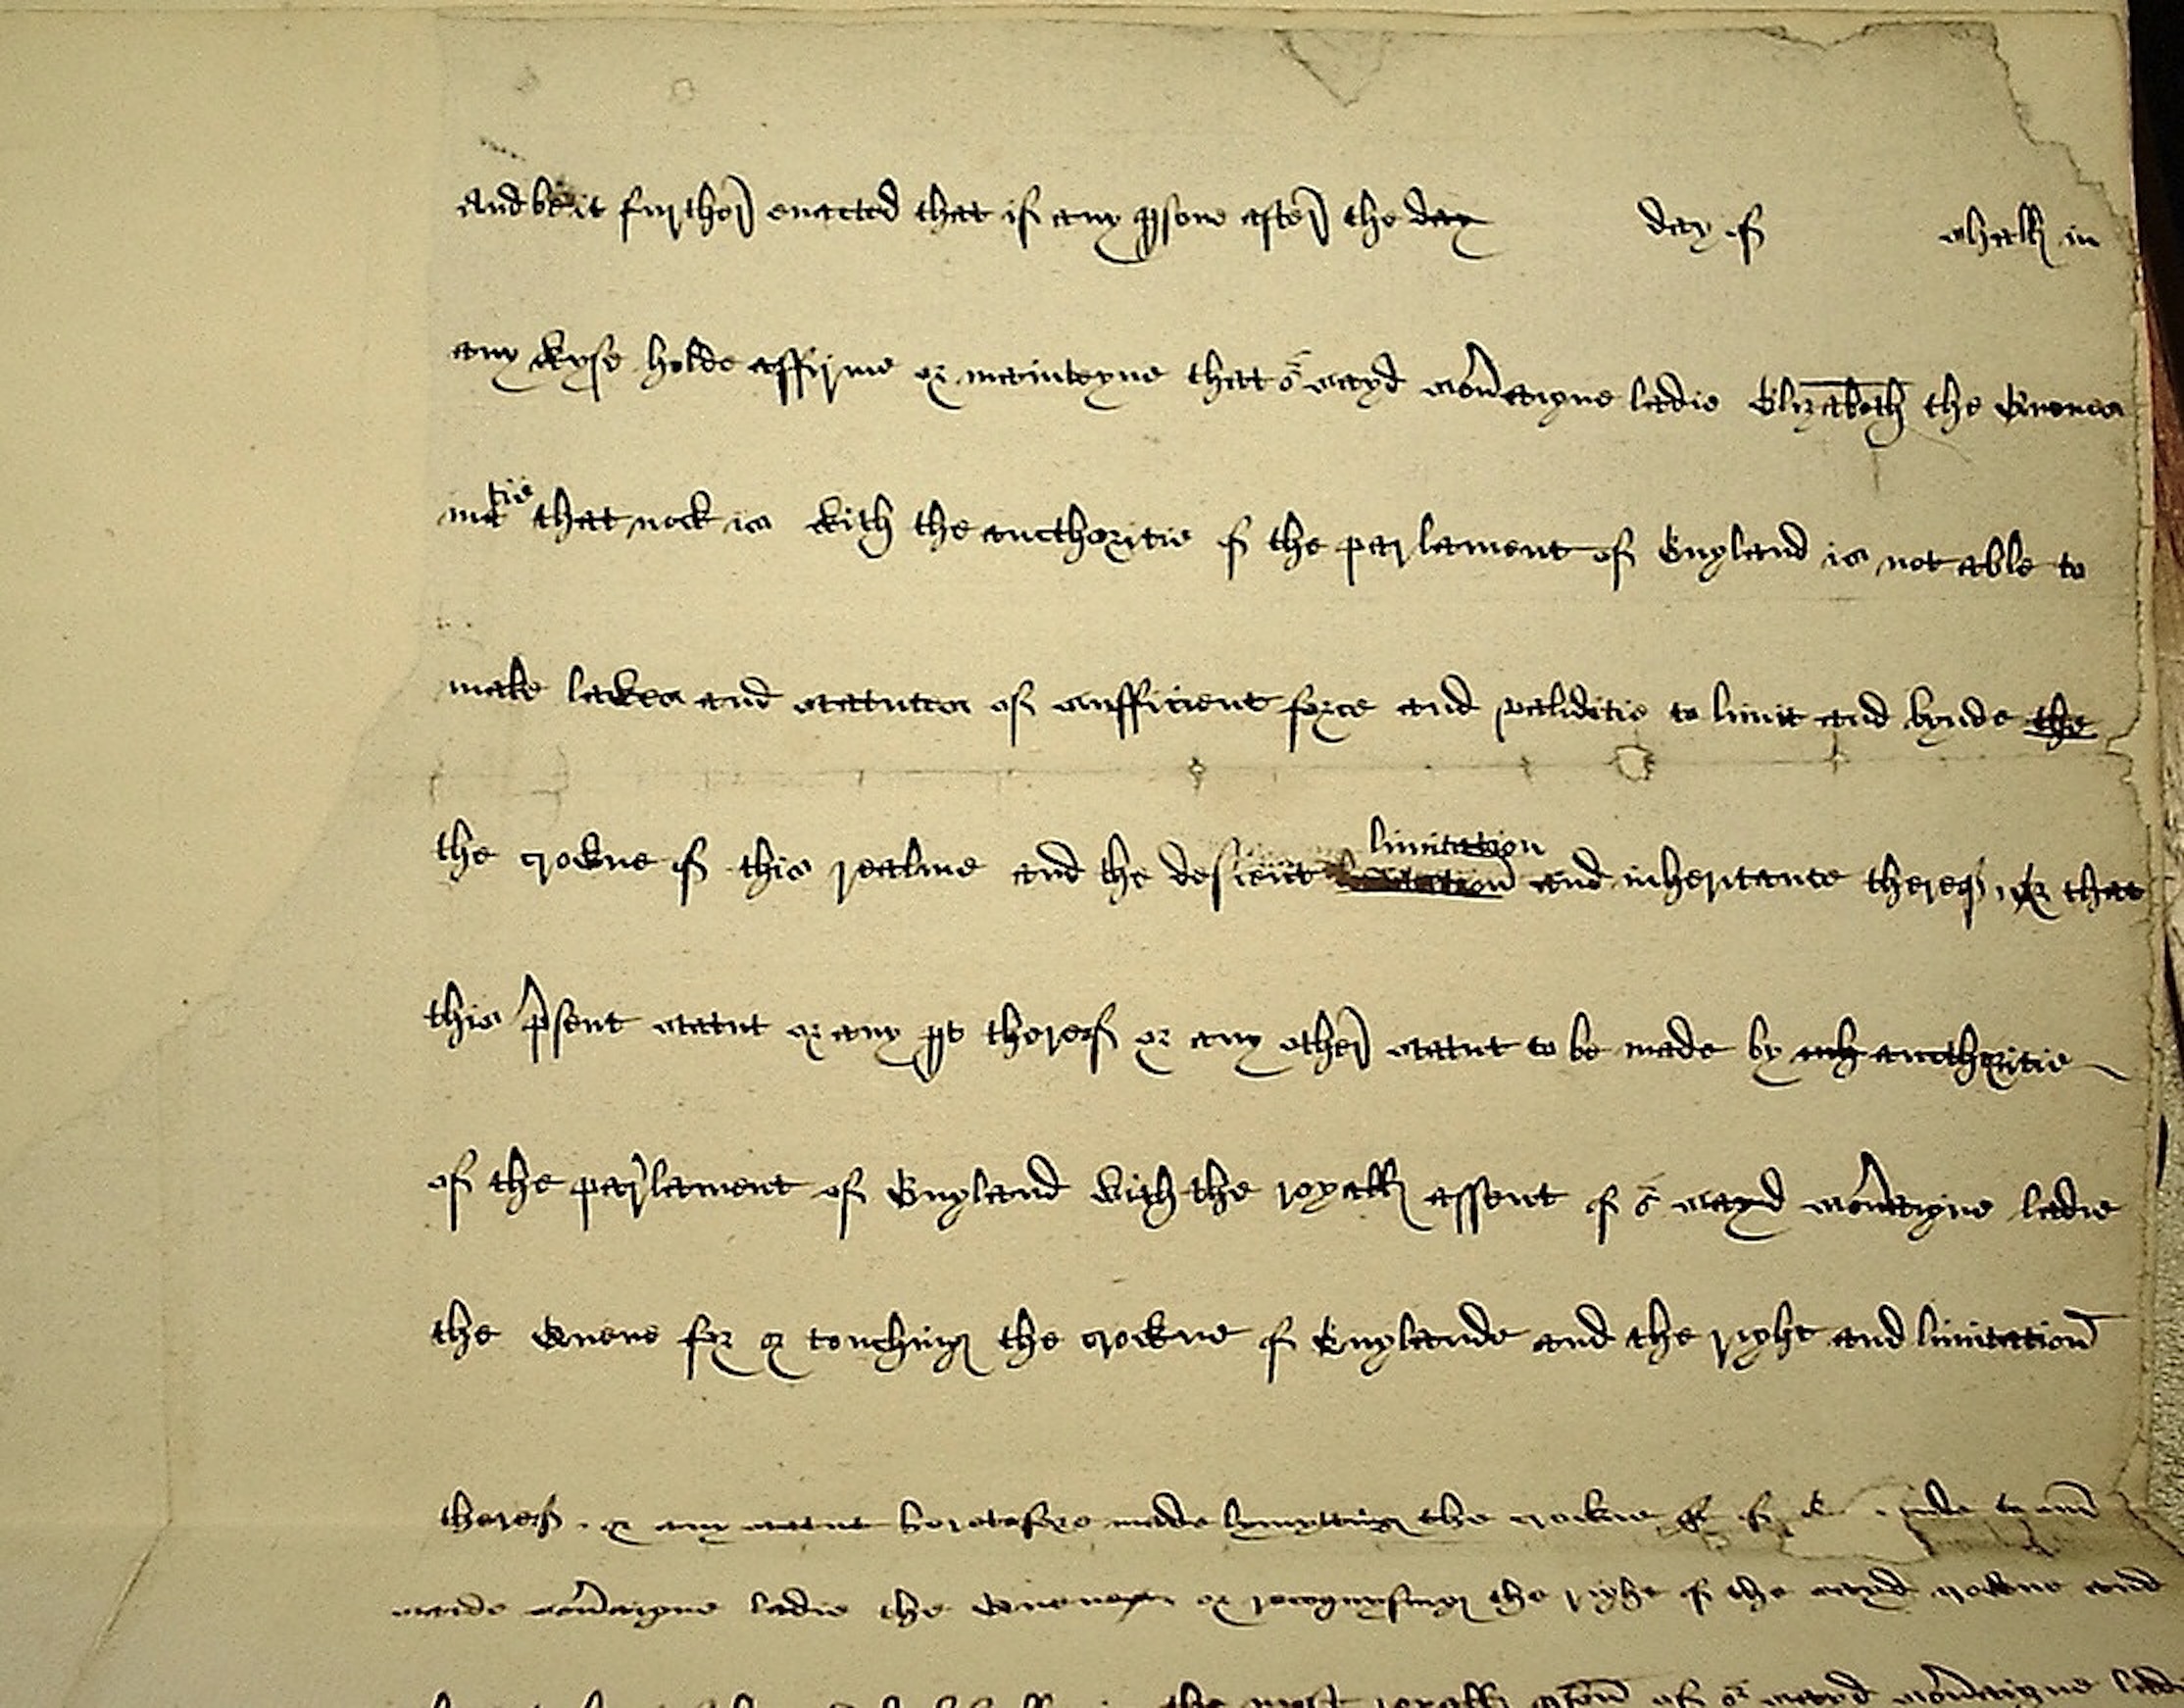 And be it further enacted that if any psone after the day day of shall in
any wyse holde affirme or mainteyne that or sayd soveraigne ladie Elizabeth the Quenes
matie that now is with the aucthoritie of the parlament of England is not able to
make lawes and statutes of sufficient force and validitie to limit and bynde the
the crowne of this realme and the descent limitation and inheritance thereof or that
this psent statut or any pt thereof or any other statut to be made by such aucthoritie
of the parlament of England with the royall assent of or sayd soveraigne ladie
the Quene for or touching the crowne of Englande and the right and limitation
thereof or any statut heretofore made lymyting the crowne of
saide soveraigne ladie the Quene or recognysing the right of the sayd crowne and
the most royall pson of or sayd soveraigne ladie